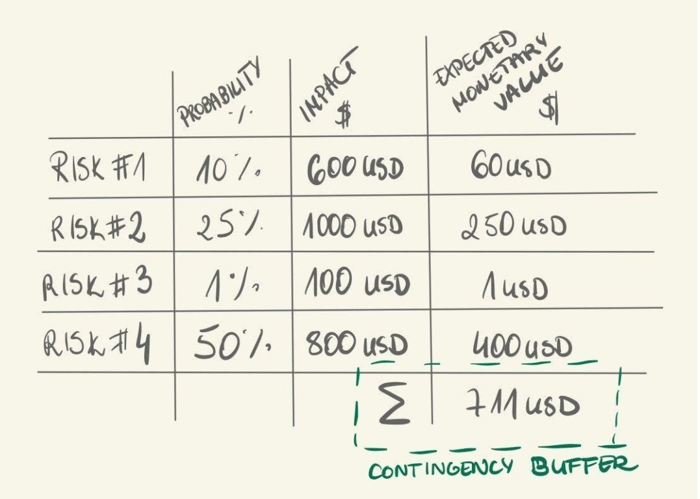 PROBABILITY
%
IMPACT
$
EXPECTED
MONETARY
VALUE
$
RISK #1 10% 600 USD 60 USD
RISK #2 25% 1000 USD 250 USD
RISK #3 1% 100 USD 1 USD
RISK #4 50% 800 USD 400 USD
Σ 711 USD
CONTINGENCY BUFFER